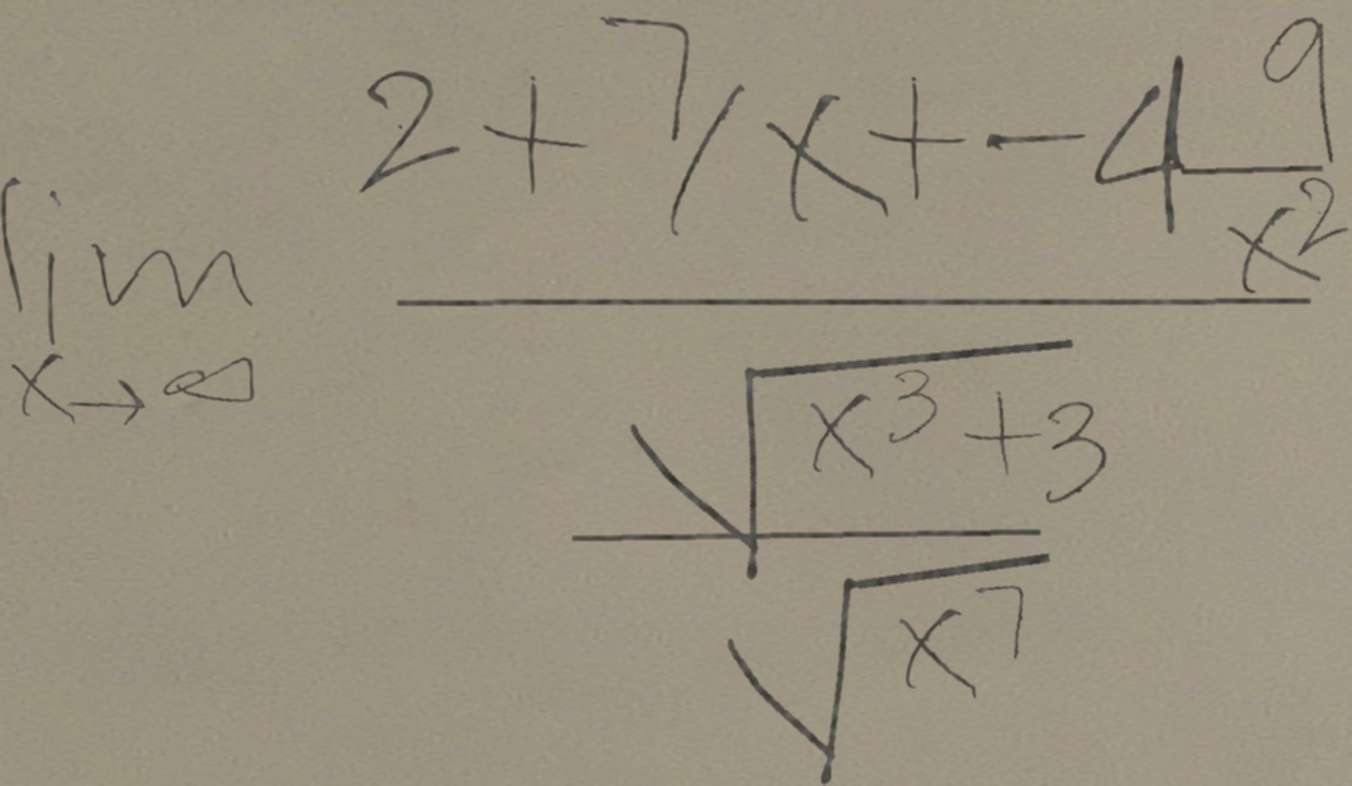 lim x→∞ \frac{2 + 7/x + - 4 \frac{9}{x^2}}{\frac{\sqrt{x^3 + 3}}{\sqrt{x^7}}}